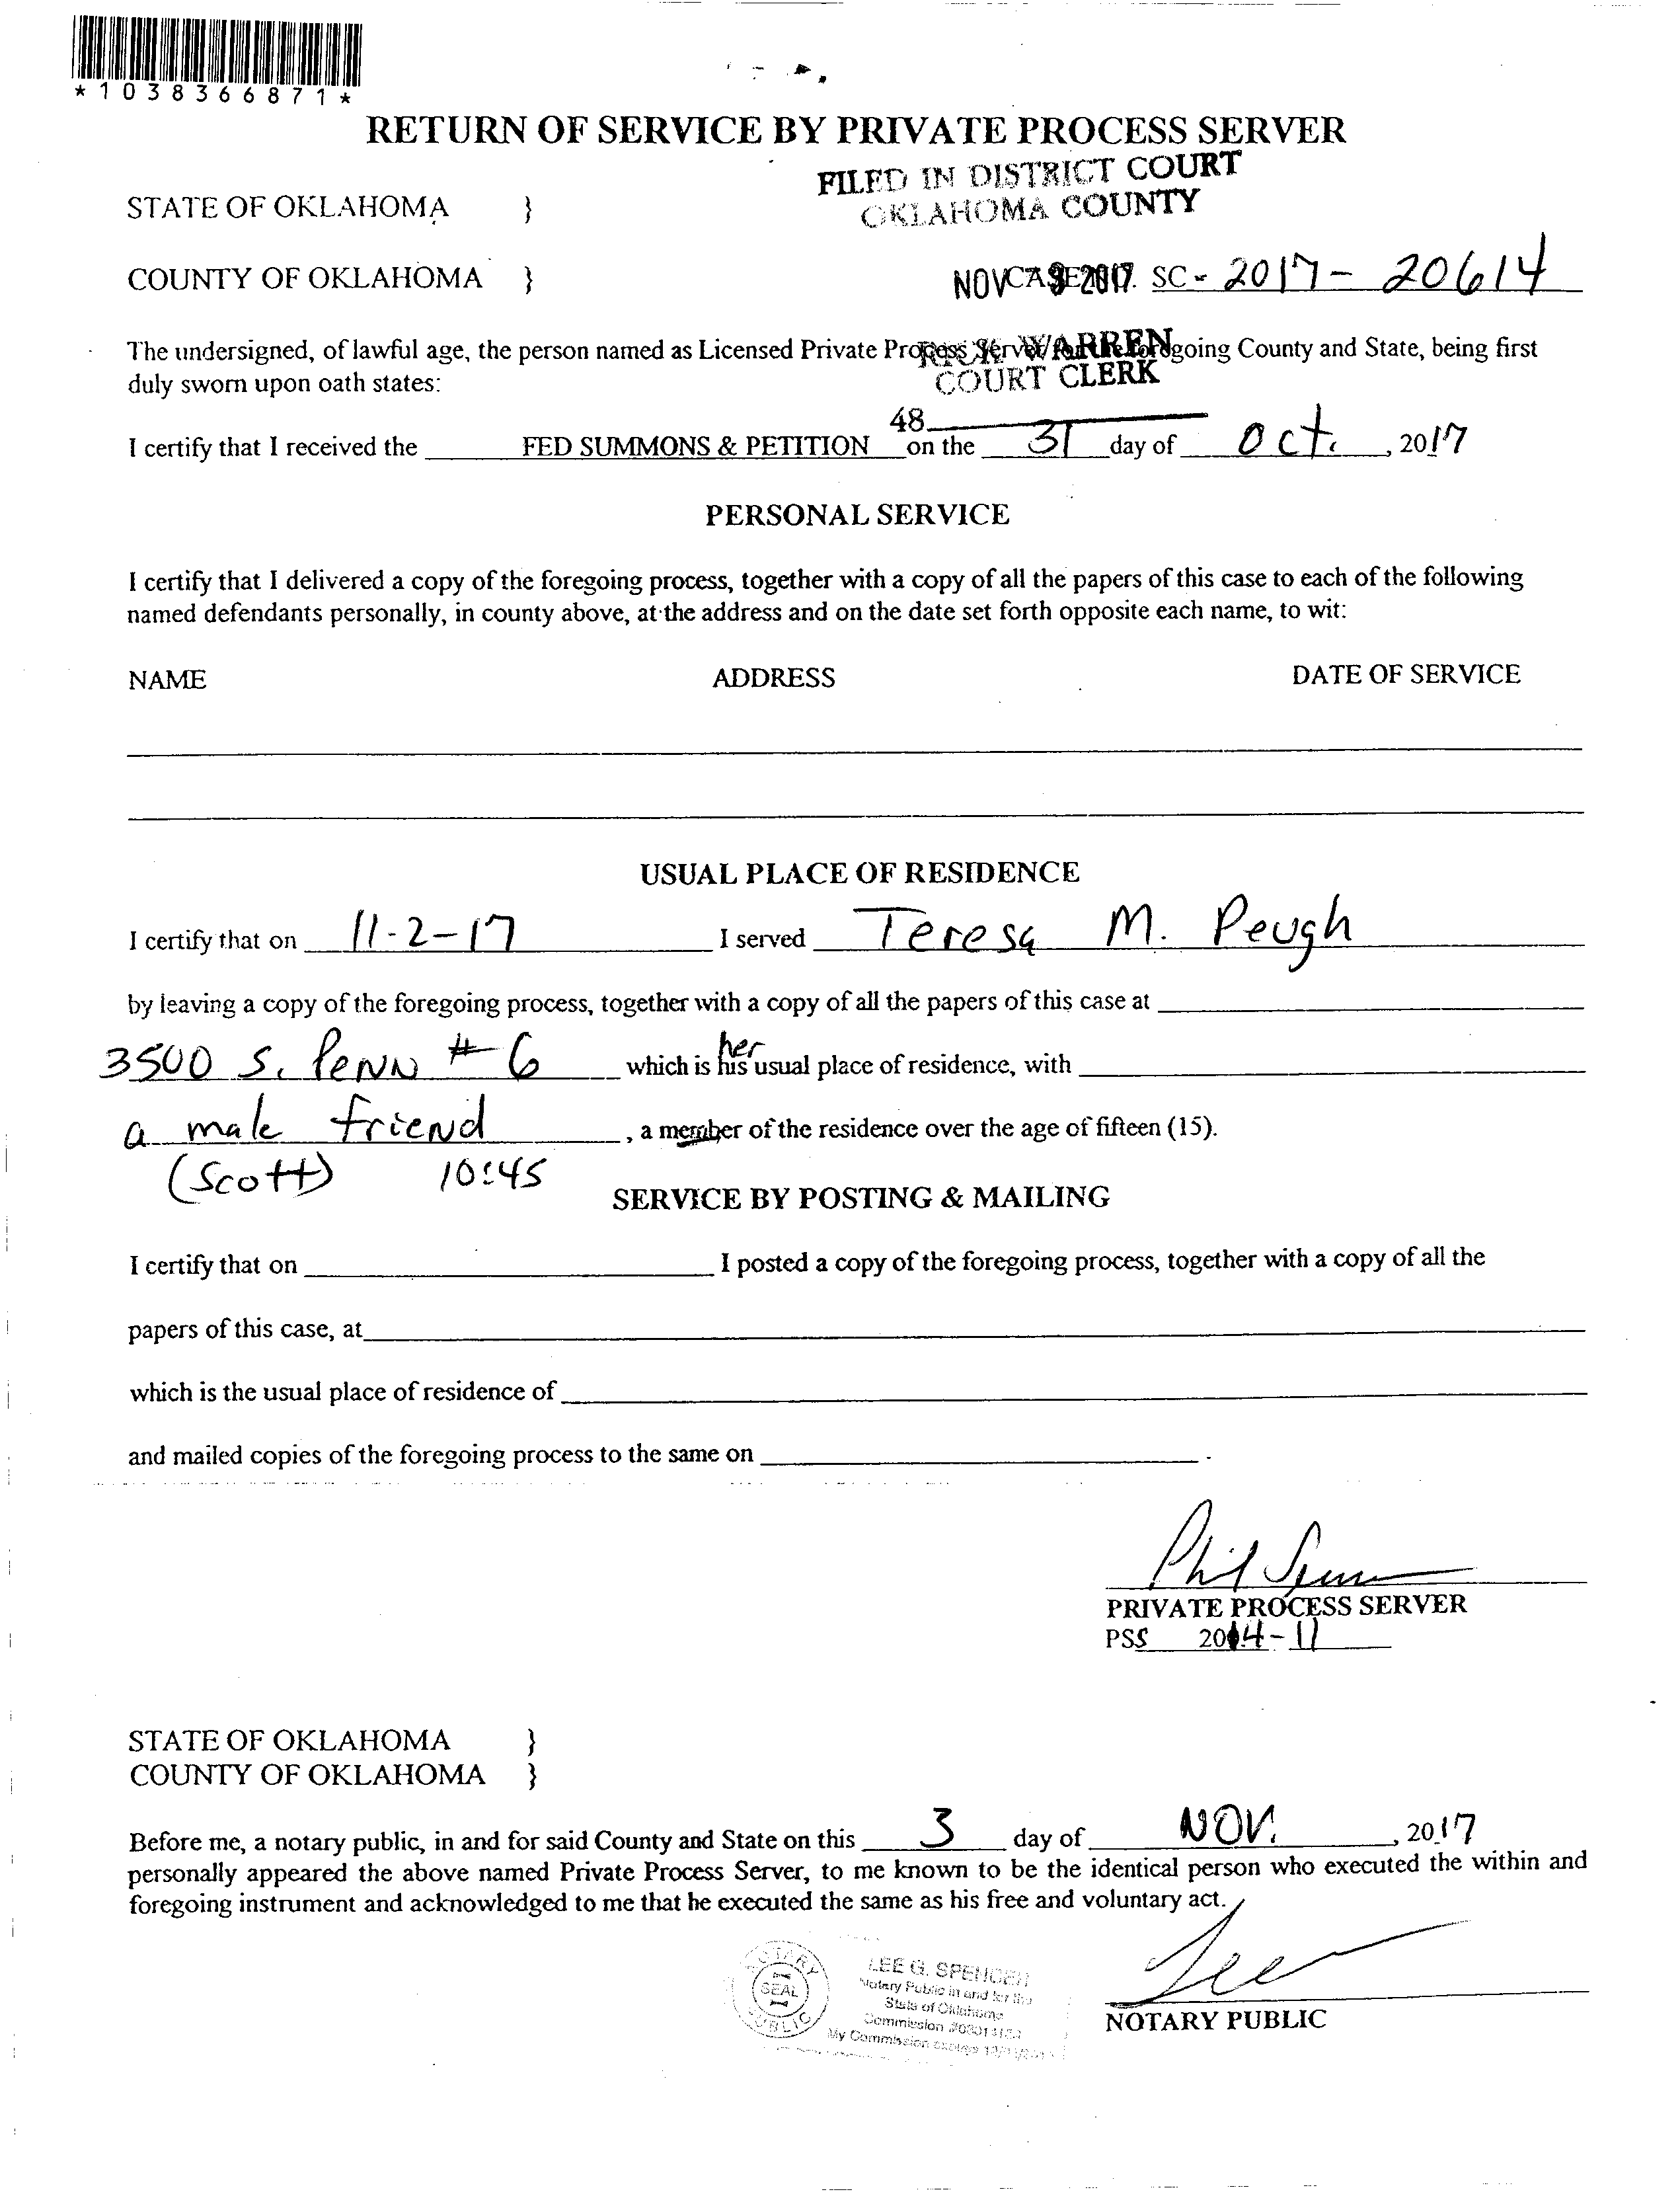 *1038366871*
RETURN OF SERVICE BY PRIVATE PROCESS SERVER
FILED IN DISTRICT COURT
OKLAHOMA COUNTY
STATE OF OKLAHOMA }
COUNTY OF OKLAHOMA }
NOV 2017
CASE NO. SC - 2017 - 20614
The undersigned, of lawful age, the person named as Licensed Private Process Server for the foregoing County and State, being first
WARREN
duly sworn upon oath states:
COURT CLERK
48
I certify that I received the FED SUMMONS & PETITION on the 31 day of Oct. , 2017
PERSONAL SERVICE
I certify that I delivered a copy of the foregoing process, together with a copy of all the papers of this case to each of the following
named defendants personally, in county above, at the address and on the date set forth opposite each name, to wit:
NAME ADDRESS DATE OF SERVICE
USUAL PLACE OF RESIDENCE
I certify that on 11-2-17 I served Teresa M. Peugh
by leaving a copy of the foregoing process, together with a copy of all the papers of this case at
her
3500 S. Penn # 6 which is his usual place of residence, with
a male friend , a member of the residence over the age of fifteen (15).
(Scott) 10:45
SERVICE BY POSTING & MAILING
I certify that on I posted a copy of the foregoing process, together with a copy of all the
papers of this case, at
which is the usual place of residence of
and mailed copies of the foregoing process to the same on .
Phil
PRIVATE PROCESS SERVER
PSS 2014-11
STATE OF OKLAHOMA }
COUNTY OF OKLAHOMA }
Before me, a notary public, in and for said County and State on this 3 day of NOV. , 2017
personally appeared the above named Private Process Server, to me known to be the identical person who executed the within and
foregoing instrument and acknowledged to me that he executed the same as his free and voluntary act.
NOTARY
SEAL
PUBLIC
LEE G. SPENCER
Notary Public in and for the
State of Oklahoma
Commission
My Commission expires
Lee
NOTARY PUBLIC